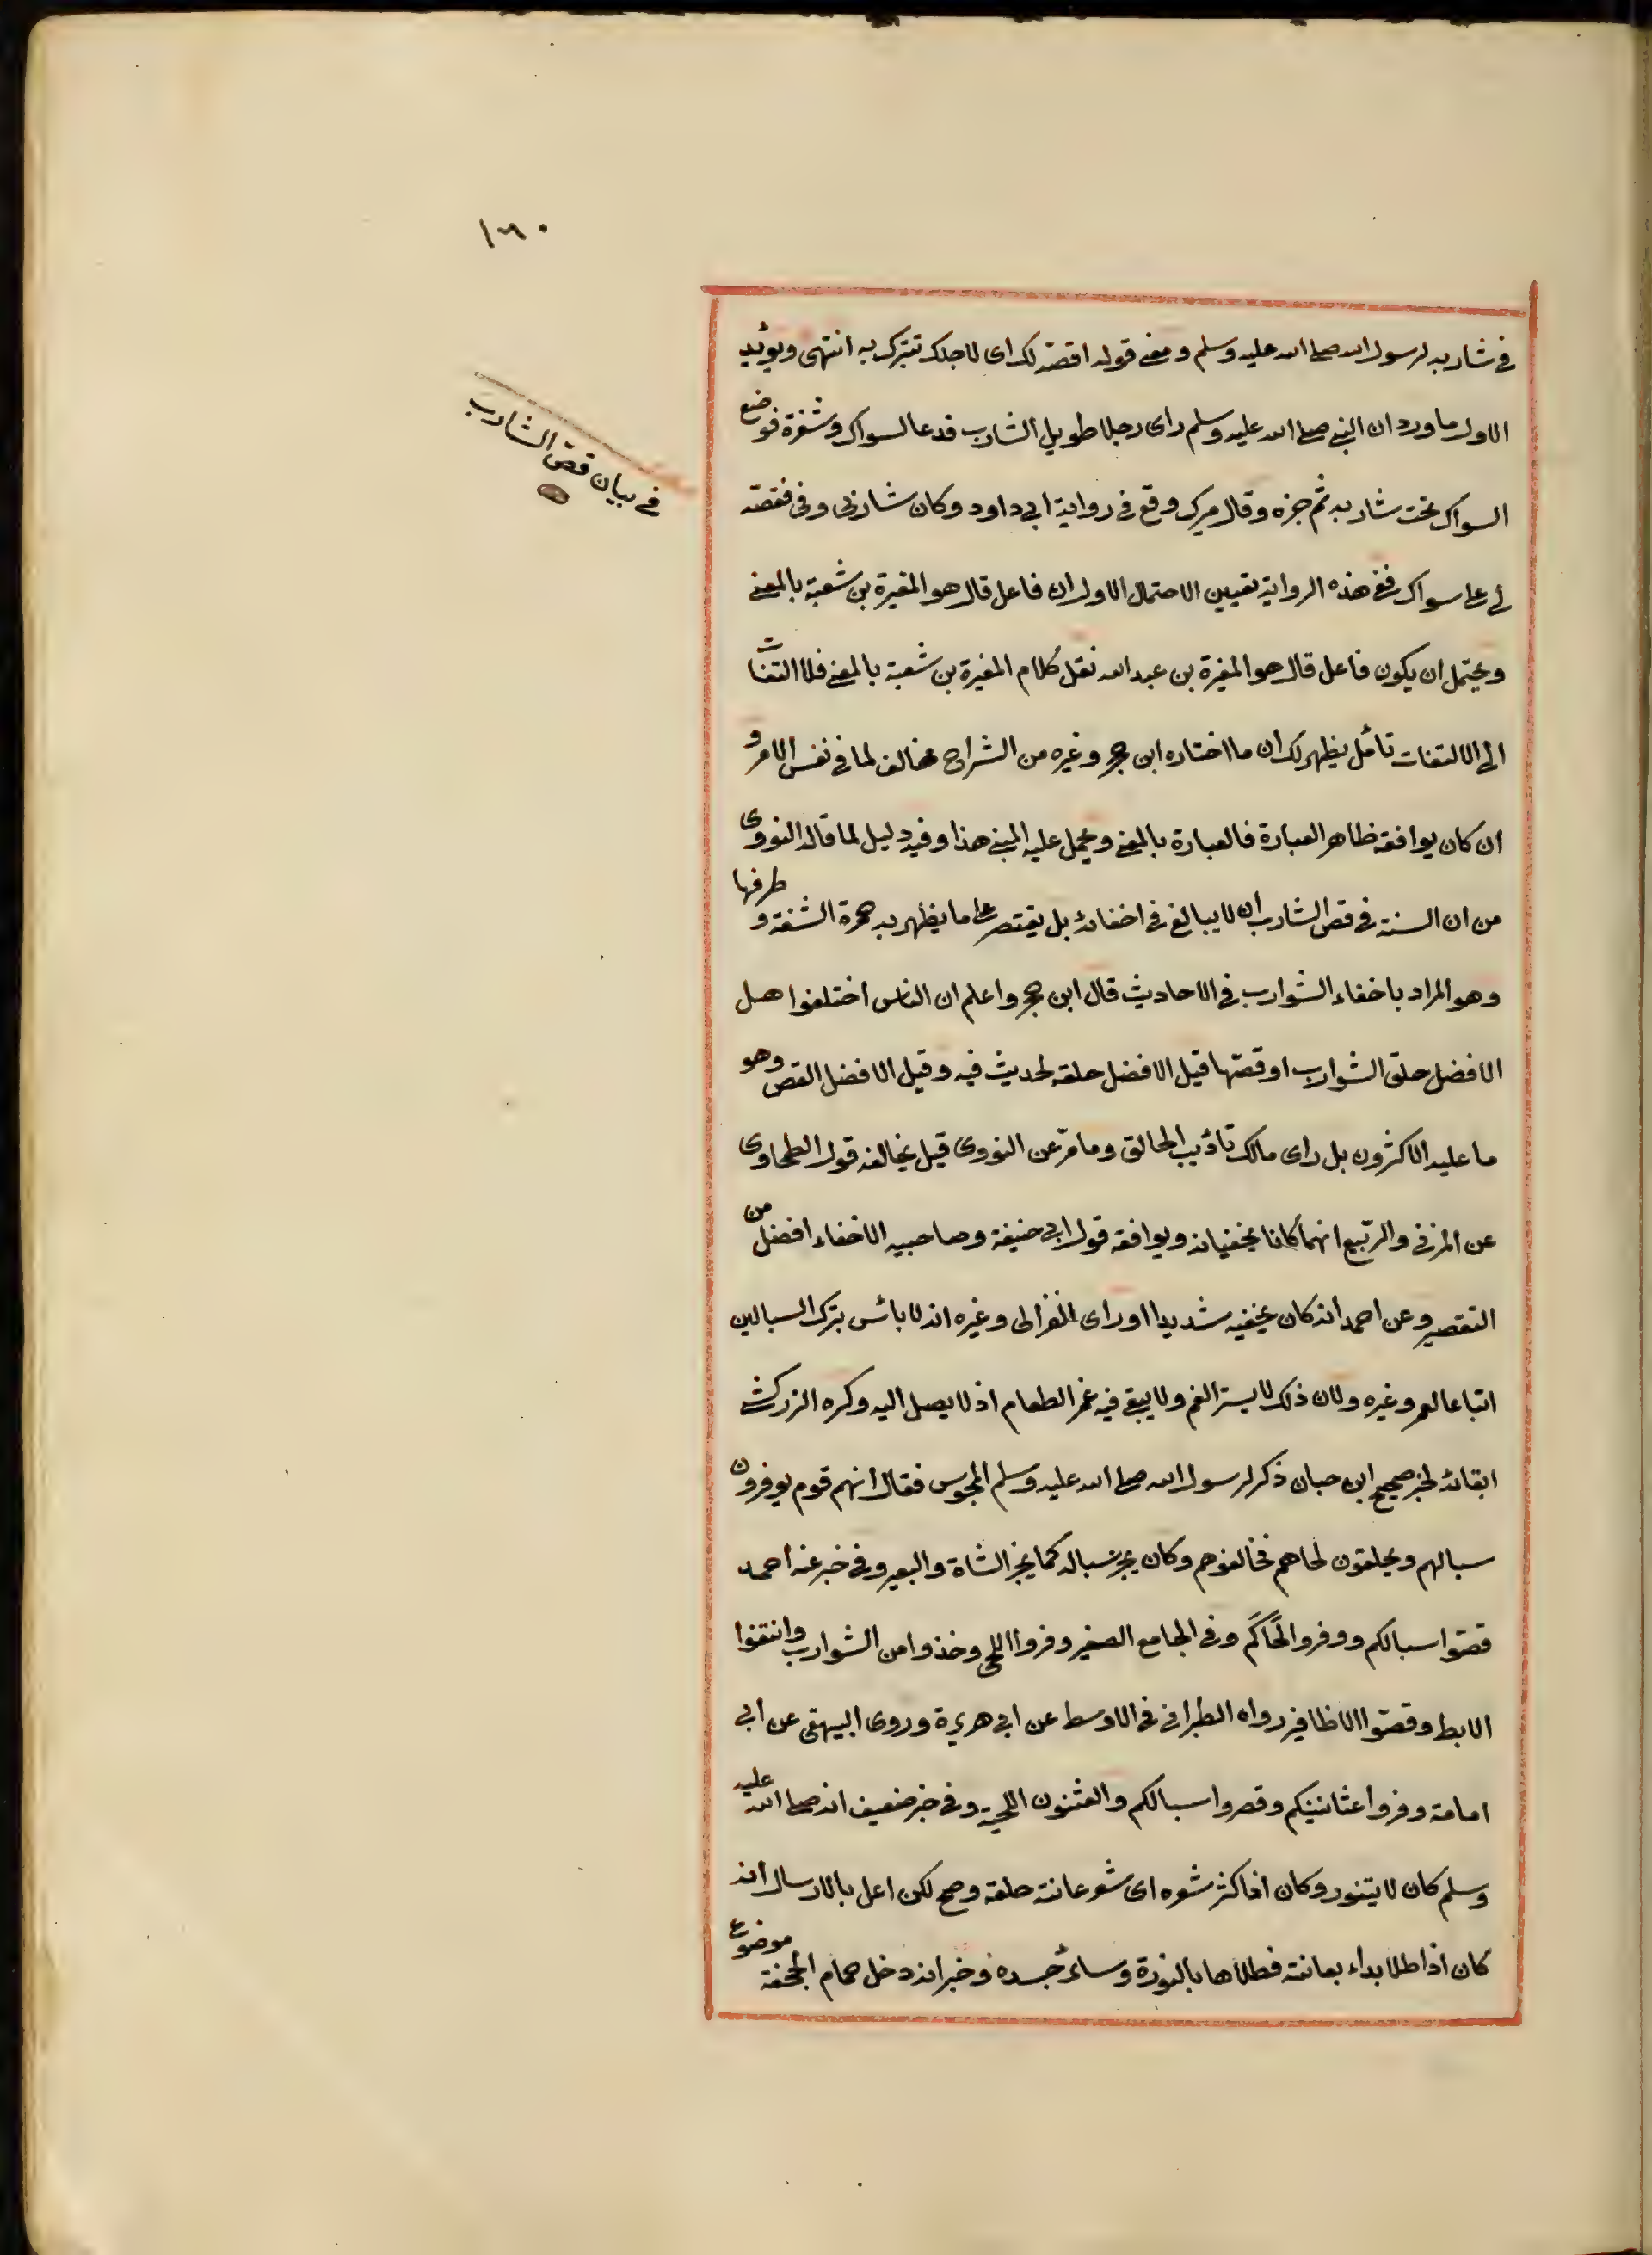 ١٦٠
في بيان قص الشارب
في شاربه لرسول الله صلى الله عليه وسلم ومعنى قوله اقصه لك اى لاجلك تتبرك به انتهى ويؤيد
الاول ما ورد ان النبي صلى الله عليه وسلم راى رجلا طويل الشارب فدعا لسواك وشفرة فوضع
السواك تحت شاربه ثم جزه وقال ميرك وقع في رواية ابي داود وكان شاربي وفى فقصه
لى على سواك ففي هذه الرواية تعيين الاحتمال الاول ان فاعل قال هو المغيرة بن شعبة بالمعنى
ويحتمل ان يكون فاعل قال هو المغيرة بن عبد الله نقل كلام المغيرة بن شعبة بالمعنى فلا التفات
الى الالتفات تأمل يظهر لك ان ما اختاره ابن حجر وغيره من الشراح مخالف لما في نفس الامر و
ان كان يوافقه ظاهر العبارة فالعبارة بالمعنى ويحمل عليه المبنى هذا وفيه دليل لما قاله النووى
من ان السنة في قص الشارب ان لا يبالغ في احفائه بل يقتصر على ما يظهر به حمرة الشفة و طرفها
وهو المراد باحفاء الشوارب في الاحاديث قال ابن حجر واعلم ان الناس اختلفوا هل
الافضل حلق الشوارب او قصها قيل الافضل حلقه لحديث فيه وقيل الافضل القص وهو
ما عليه الاكثرون بل راى مالك تأديب الحالق وما مرّ عن النووى قيل يخالفه قول الطحاوى
عن المزنى والربيع انهما كانا يحفيانه ويوافقه قول ابي حنيفة وصاحبيه الاحفاء افضل من
التقصير وعن احمد انه كان يحفيه شديدا وراى الغزالى وغيره انه لا بأس بترك السبالين
اتباعا لعمر وغيره ولان ذلك لا يستر الفم ولا يبقى فيه غمر الطعام اذ لا يصل اليه وكره الزركشى
ابقائه لخبر صحيح ابن حبان ذكر لرسول الله صلى الله عليه وسلم المجوس فقال انهم قوم يوفرون
سبالهم ويحلقون لحاهم فخالفوهم وكان يجز سباله كما يجز الشاة والبعير وفى خبر عند احمد
قصّوا سبالكم ووفروا لحاكم وفى الجامع الصغير وفروا اللحى وخذوا من الشوارب وانتفوا
الابط وقصّوا الاظافير رواه الطبرانى فى الاوسط عن ابي هريرة وروى البيهقى عن ابي
امامة وفروا عثانينكم وقصروا سبالكم والعثنون اللحية وفى خبر ضعيف انه صلى الله عليه
وسلم كان لا يتنور وكان اذا كثر شعره اى شعر عانته حلقه وصح لكن اعل بالارسال انه
كان اذا طلا بداء بعانته فطلاها بالنورة وسائر جسده وخبر انه دخل حمام الجحفة موضوع